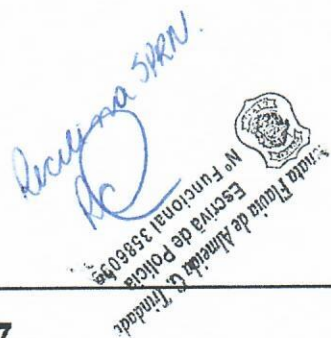 Recebi na SPRN.
nata Flavia de Almeida G. Trindad
Escrivã de Polícia
Nº Funcional
7